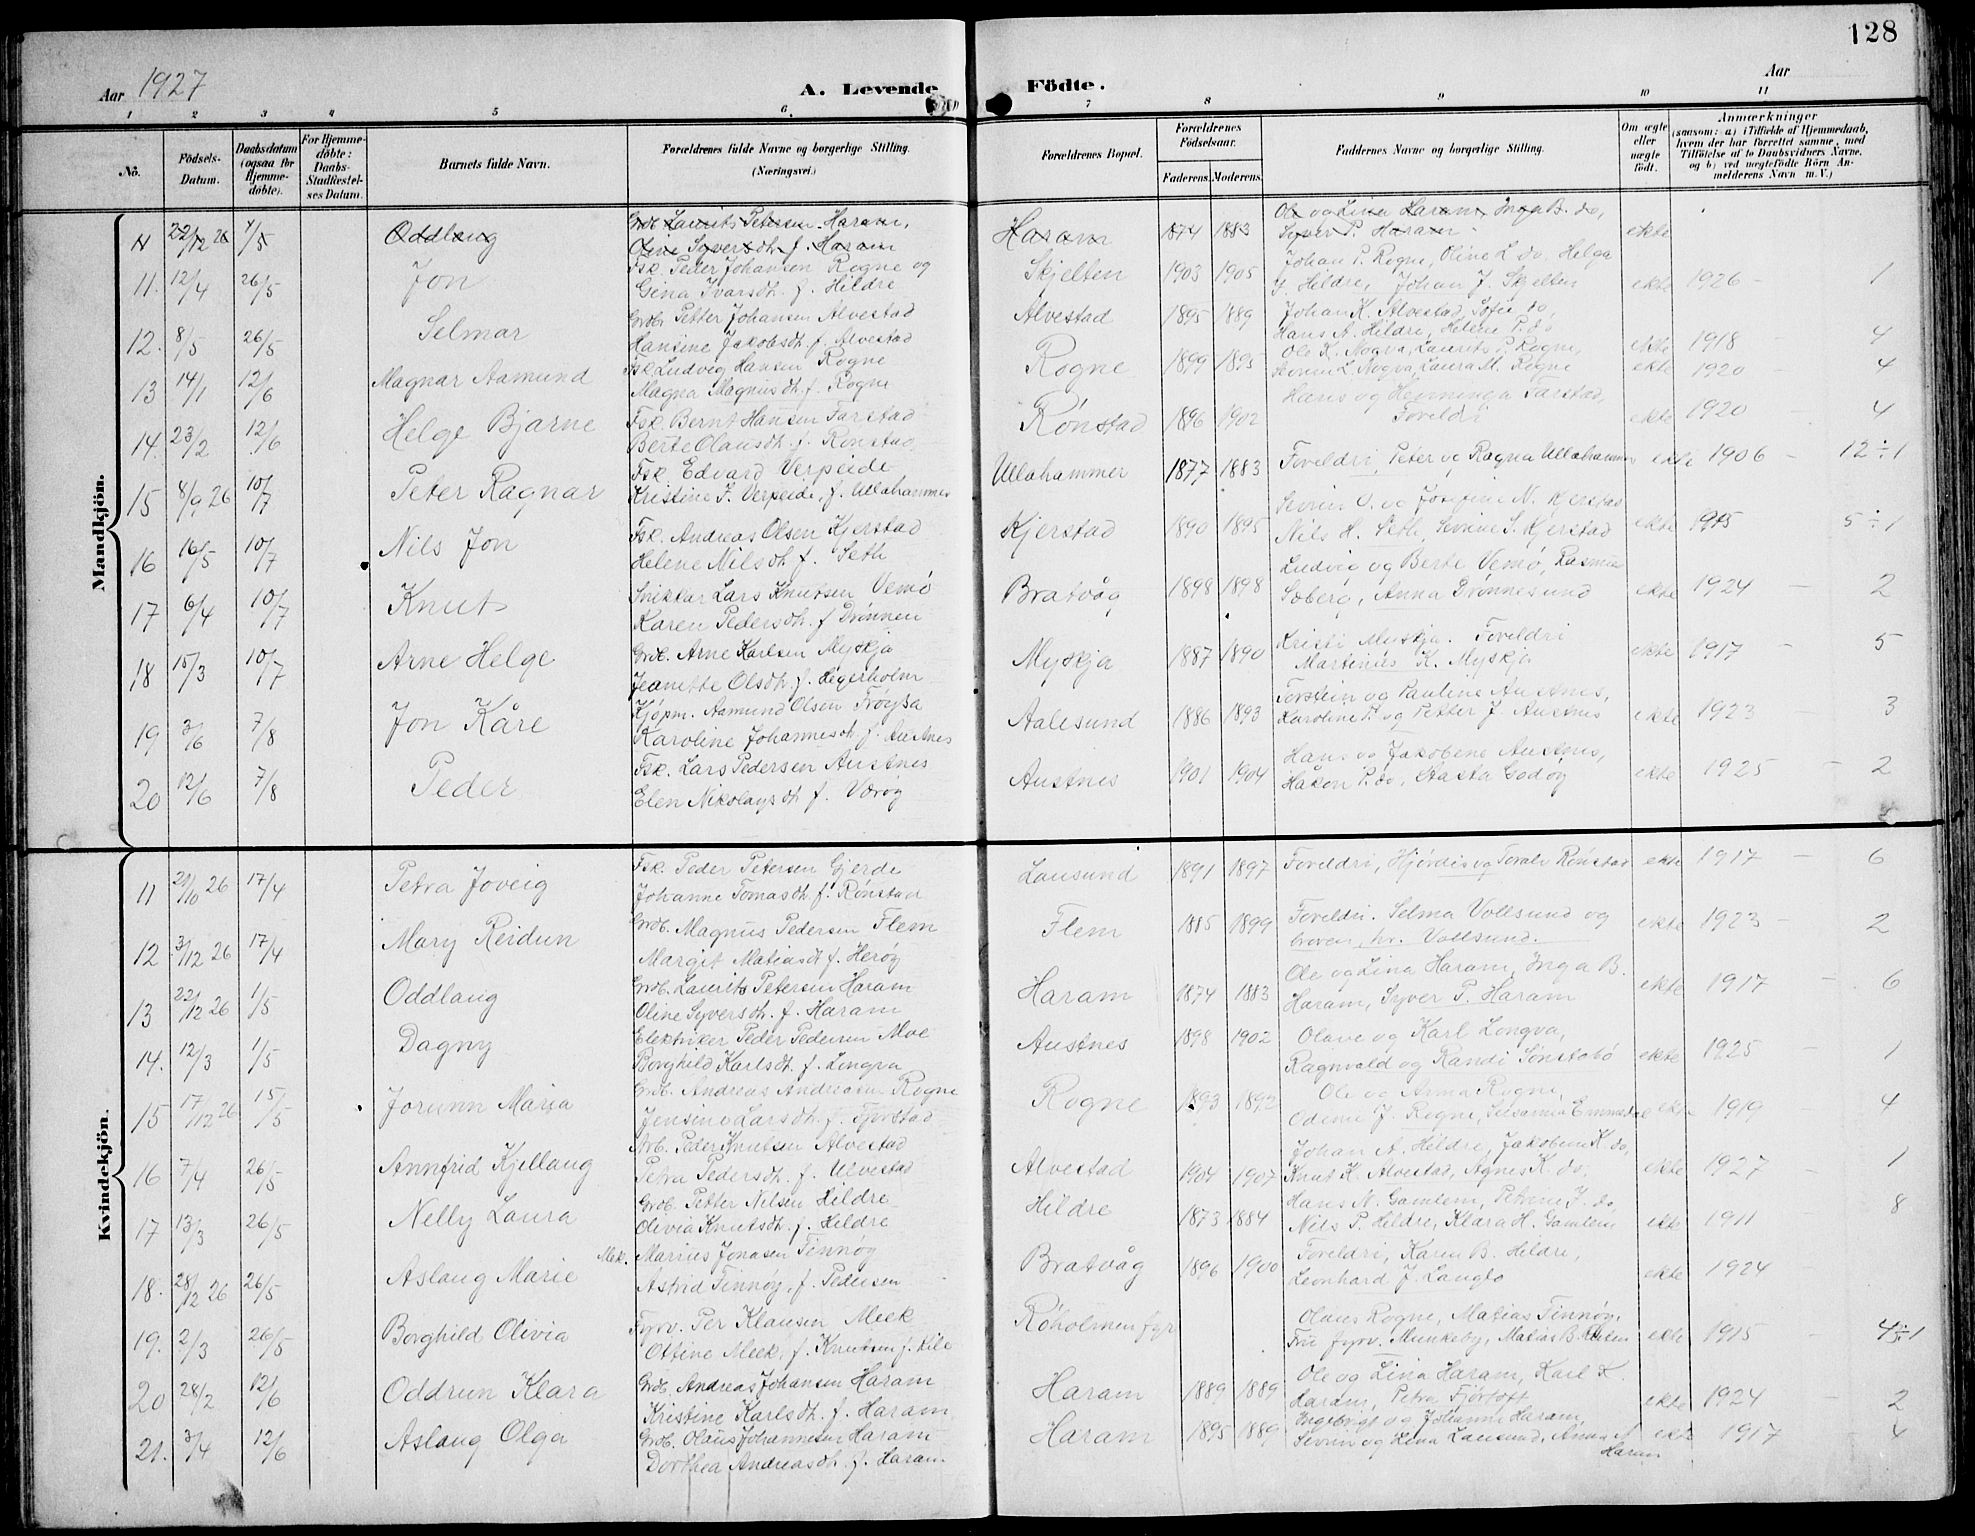 128
Aar 1927
A. Levende Födte.
Aar
1 2 3 4 5 6. 7 8 9 10 11
No.
Födsels-Datum.
Daabsdatum (ogsaa for Hjemme-döbte).
For Hjemme-döbte: Daabs-Stadfæstel-ses Datum.
Barnets fulde Navn.
Forældrenes fulde Navne og borgerlige Stilling. (Næringsvei.)
Forældrenes Bopæl.
Forældrenes Födselsaar.
Faderens. Moderens.
Faddernes Navne og borgerlige Stilling.
Om ægte eller uægte födt.
Anmærkninger
(saasom: a) i Tilfælde af Hjemmedaab, hvem der har forrettet samme, med Tilföielse af to Daabsvidners Navne, og b) ved uægte födte Börn An-melderens Navn m. V.)
Mandkjön.
11 22/12 26 1/5 Oddlaug Grdb. Laurits Petersen Haram, Haram 1874 1883 Ole og Lina Haram, Inga B. do, ekte
Oline Syversdh. f. Haram Syver P. Haram
11. 12/4 26/5 Jon Fsk. Peder Johansen Rogne og Skjelten 1903 1905 Johan P. Rogne, Oline L. do. Helga ekte 1926 - 1
Gina Ivarsdh. f. Hildre J. Hildre, Johan J. Skjelten
12. 8/5 26/5 Selmar Grdb. Petter Johansen Alvestad Alvestad 1895 1889 Johan K. Alvestad, Sofie do, ekte 1918 - 4
Hansine Jakobsdh. f. Alvestad Hans A. Hildre, Helene P. do
13 14/1 12/6 Magnar Aamund Fsk. Ludvig Hansen Rogne Rogne 1899 1895 Ole K. Nogva, Laurits P. Rogne, ekte 1920 - 4
Magna Magnusdh. f. Rogne L. Nogva, Laura M. Rogne
14. 23/2 12/6 Helge Bjarne Fsk. Bernt Hansen Farstad Rønstad 1896 1902 Hans og Henninga Farstad, ekte 1920 - 4
Berte Olausdh. f. Rønstad Foreldri
15 8/9 26 10/7 Peter Ragnar Fsk. Edvard Verpeide Ullahammer 1877 1883 Foreldri, Peter og Ragna Ullahammer ekte 1906 - 12÷1
Kristine J. Verpeide, f. Ullahammer
16 16/5 10/7 Nils Jon Fsk. Andreas Olsen Kjerstad Kjerstad 1890 1895 Sevrin O. og Josefine N. Kjerstad ekte 1915 5÷1
Helene Nilsdh. f. Seth Nils H. Seth, Sevrine S. Kjerstad
17 6/4 10/7 Knut Snikkar Lars Knutsen Vemø Bratvåg 1898 1898 Ludvig og Berte Vemø, Rasmus ekte 1924 - 2
Karen Pedersdh. f. Drønnen Søberg, Anna Drønnesund
18 15/3 10/7 Arne Helge Grdb. Arne Karlsen Myskja Myskja 1887 1890 Kristi Myskja. Foreldri ekte 1917 - 5
Jeanette Olsdh. f. Hegerholm Martinus K. Myskja
19 3/6 7/8 Jon Kåre Kjøpm. Aamund Olsen Frøysa Aalesund 1886 1893 Torstein og Pauline Austnes, ekte 1923 - 3
Karoline Johannesdh. f. Austnes Karoline P. og Petter J. Austnes
20 12/6 7/8 Peder Fsk. Lars Pedersen Austnes Austnes 1901 1904 Hans og Jakobine Austnes, ekte 1925 - 2
Elen Nikolaysdh. f. Værøy Håkon P. do, Aasta Godøy
Kvindekjön.
11 21/10 26 17/4 Petra Joveig Fsk. Peder Petersen Gjerde Lausund 1891 1897 Foreldri, Hjørdis og Torals Rønstad ekte 1917 - 6
Johanne Tomasdh. f. Rønstad
12 3/12 26 17/4 Mary Reidun Grdb. Magnus Pedersen Flem Flem 1885 1899 Foreldri. Selma Vollsund og ekte 1923 - 2
Margit Matiasdt. f. Herøy hr. Vollsund.
13 22/12 26 1/5 Oddlaug Grdb. Laurits Petersen Haram Haram 1874 1883 Ole og Lina Haram, Inga B. ekte 1917 - 6
Oline Syversdh. f. Haram Haram, Syver P. Haram
14. 12/3 1/5 Dagny Elektriker Peder Pedersen Moe Austnes 1898 1902 Olave og Karl Longva, ekte 1925 - 1
Borghild Karlsdh. f. Longva Ragnvald og Randi Sønstabø
15 17/12 26 15/5 Jorunn Maria Grdb. Andreas Andreasen Rogne Rogne 1893 1892 Ole og Anna Rogne, ekte 1919 - 4
Jensine Larsdh. f. Fjørstad Odeme J. Rogne,
16 7/4 26/5 Annfrid Kjellaug Arb. Peder Knutsen Alvestad Alvestad 1904 1907 Johan A. Hildre, Jakobine K. do, ekte 1927 - 1
Petra Pedersdh. f. Ulvestad Knut K. Alvestad, Agnes K. do.
17 13/3 26/5 Nelly Laura Grdb. Petter Nilsen Hildre Hildre 1873 1884 Hans N. Gamlem, Petrine J. do, ekte 1911 - 8
Olivia Knutsdh. f. Hildre Nils P. Hildre, Klara H. Gamlem
18. 28/12 26 26/5 Aslaug Marie Mek. Marius Jonasen Finnøy Bratvåg 1896 1900 Foreldri, Karen B. Hildre, ekte 1924 -
Astrid Finnøy, f. Pedersen Leonhard J. Langlo
19. 2/3 26/5 Borghild Olivia Fyrv. Per Klausen Meek Røholmen fyr Olaus Rogne, Matias Finnøy, ekte 1915 - 4÷1
Ottine Meek, f. Knutsen f. Kile Fru fyrv. Munkeby, Matias B.
20 28/2 12/6 Oddrun Klara Grdb. Andreas Johansen Haram Haram 1889 1889 Ole og Lina Haram, Karl K. ekte 1924 - 2
Kristine Karlsdh. f. Haram Haram, Petra Fjørtoft
21. 3/4 12/6 Aslaug Olga Grdb. Olaus Johannesen Haram Haram 1895 1889 Ingebrigt og Johanne Haram, ekte 1917 - 4
Dorthea Andreasdh. f. Haram. Sevrin og Lena Lausund, Anna A Haram